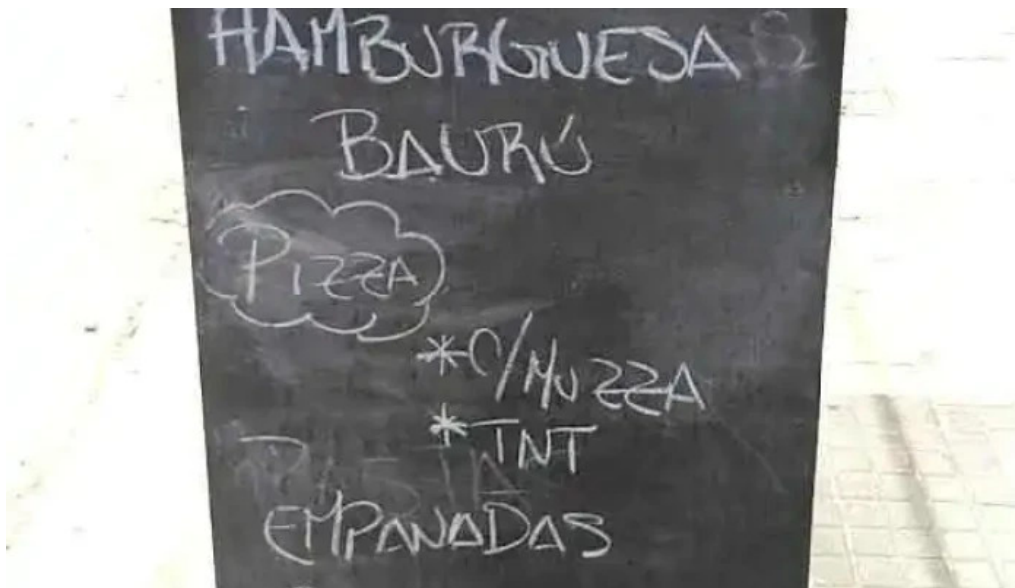 HAMBURGUESAS
BAURÚ
PIZZA
*C/MUZZA
*TNT
PASTA
EMPANADAS